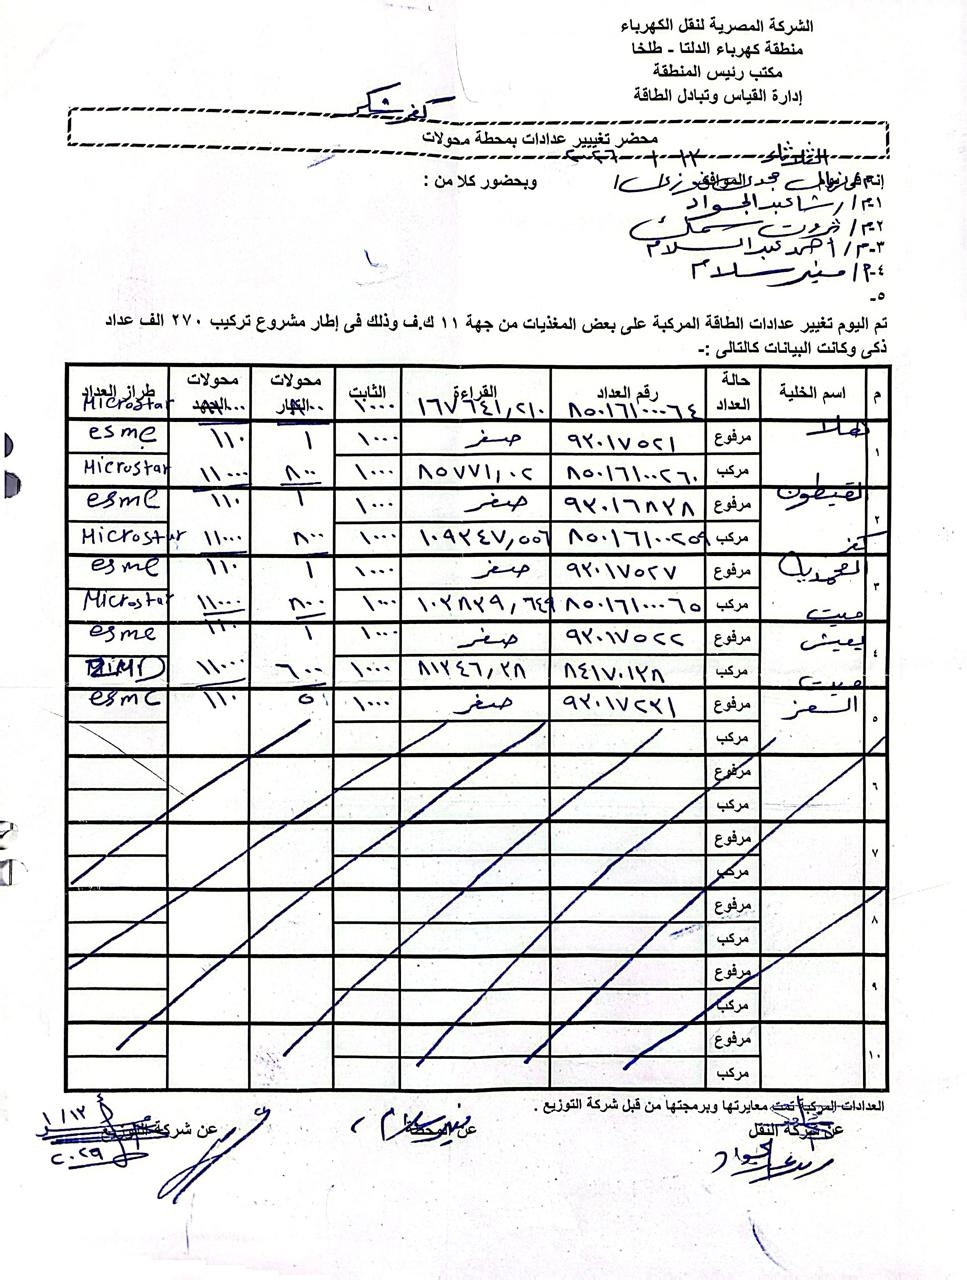 الشركة المصرية لنقل الكهرباء
منطقة كهرباء الدلتا - طلخا
مكتب رئيس المنطقة
إدارة القياس وتبادل الطاقة
كفر شكر
محضر تغييير عدادات بمحطة محولات
الثلاثاء ١٣ ١ ٢٠٢٦
إنه فى يوم الموافق وبحضور كلا من :
١-م/ رشا عبد الجواد
٢-م/ ثروت سمك
٣-م/ أحمد عبد السلام
٤-م/ منير سلام
٥-
تم اليوم تغيير عدادات الطاقة المركبة على بعض المغذيات من جهة ١١ ك.ف وذلك فى إطار مشروع تركيب ٢٧٠ الف عداد
ذكى وكانت البيانات كالتالى :-
م اسم الخلية حالة العداد رقم العداد القراءة الثابت محولات التيار محولات الجهد طراز العداد
٨٥٠١٦١٠٠٠٦٤ ١٦٧٦٤١,٢١٠ ١٠٠٠ Microstar
١ مرفوع ٩٣٠١٧٥٢١ صفر ١٠٠٠ ١ ١١٠ esme
مركب ٨٥٠١٦١٠٠٢٦٠ ٨٥٧٧١,٠٢ ١٠٠٠ ٨٠٠ ١١٠٠٠ Microstar
٢ القيطون مرفوع ٩٣٠١٦٨٣٨ صفر ١٠٠٠ ١ ١١٠ esme
مركب ٨٥٠١٦١٠٠٢٥٩ ١٠٩٣٤٧,٥٥٦ ١٠٠٠ ٨٠٠ ١١٠٠٠ Microstar
كفر
٣ مرفوع ٩٣٠١٧٥٢٧ صفر ١٠٠٠ ١ ١١٠ esme
مركب ٨٥٠١٦١٠٠٠٦٥ ١٠٣٨٣٩,٦٤٩ ١٠٠٠ ٨٠٠ ١١٠٠٠ Microstar
ميت
٤ يعيش مرفوع ٩٣٠١٧٥٢٢ صفر ١٠٠٠ ١ ١١٠ esme
مركب ٨٤١٧٠١٣٨ ٨١٣٤٦,٣٨ ١٠٠٠ ٦٠٠ ١١٠٠٠
ميت
٥ مرفوع ٩٣٠١٧٢٣١ صفر ١٠٠٠ ٥ ١١٠ esme
مركب
٦ مرفوع
مركب
٧ مرفوع
مركب
٨ مرفوع
مركب
٩ مرفوع
مركب
١٠ مرفوع
مركب
العدادات المركبة تمت معايرتها وبرمجتها من قبل شركة التوزيع .
عن شركة النقل عن المحطة عن شركة التوزيع
منير سلام
١/١٣